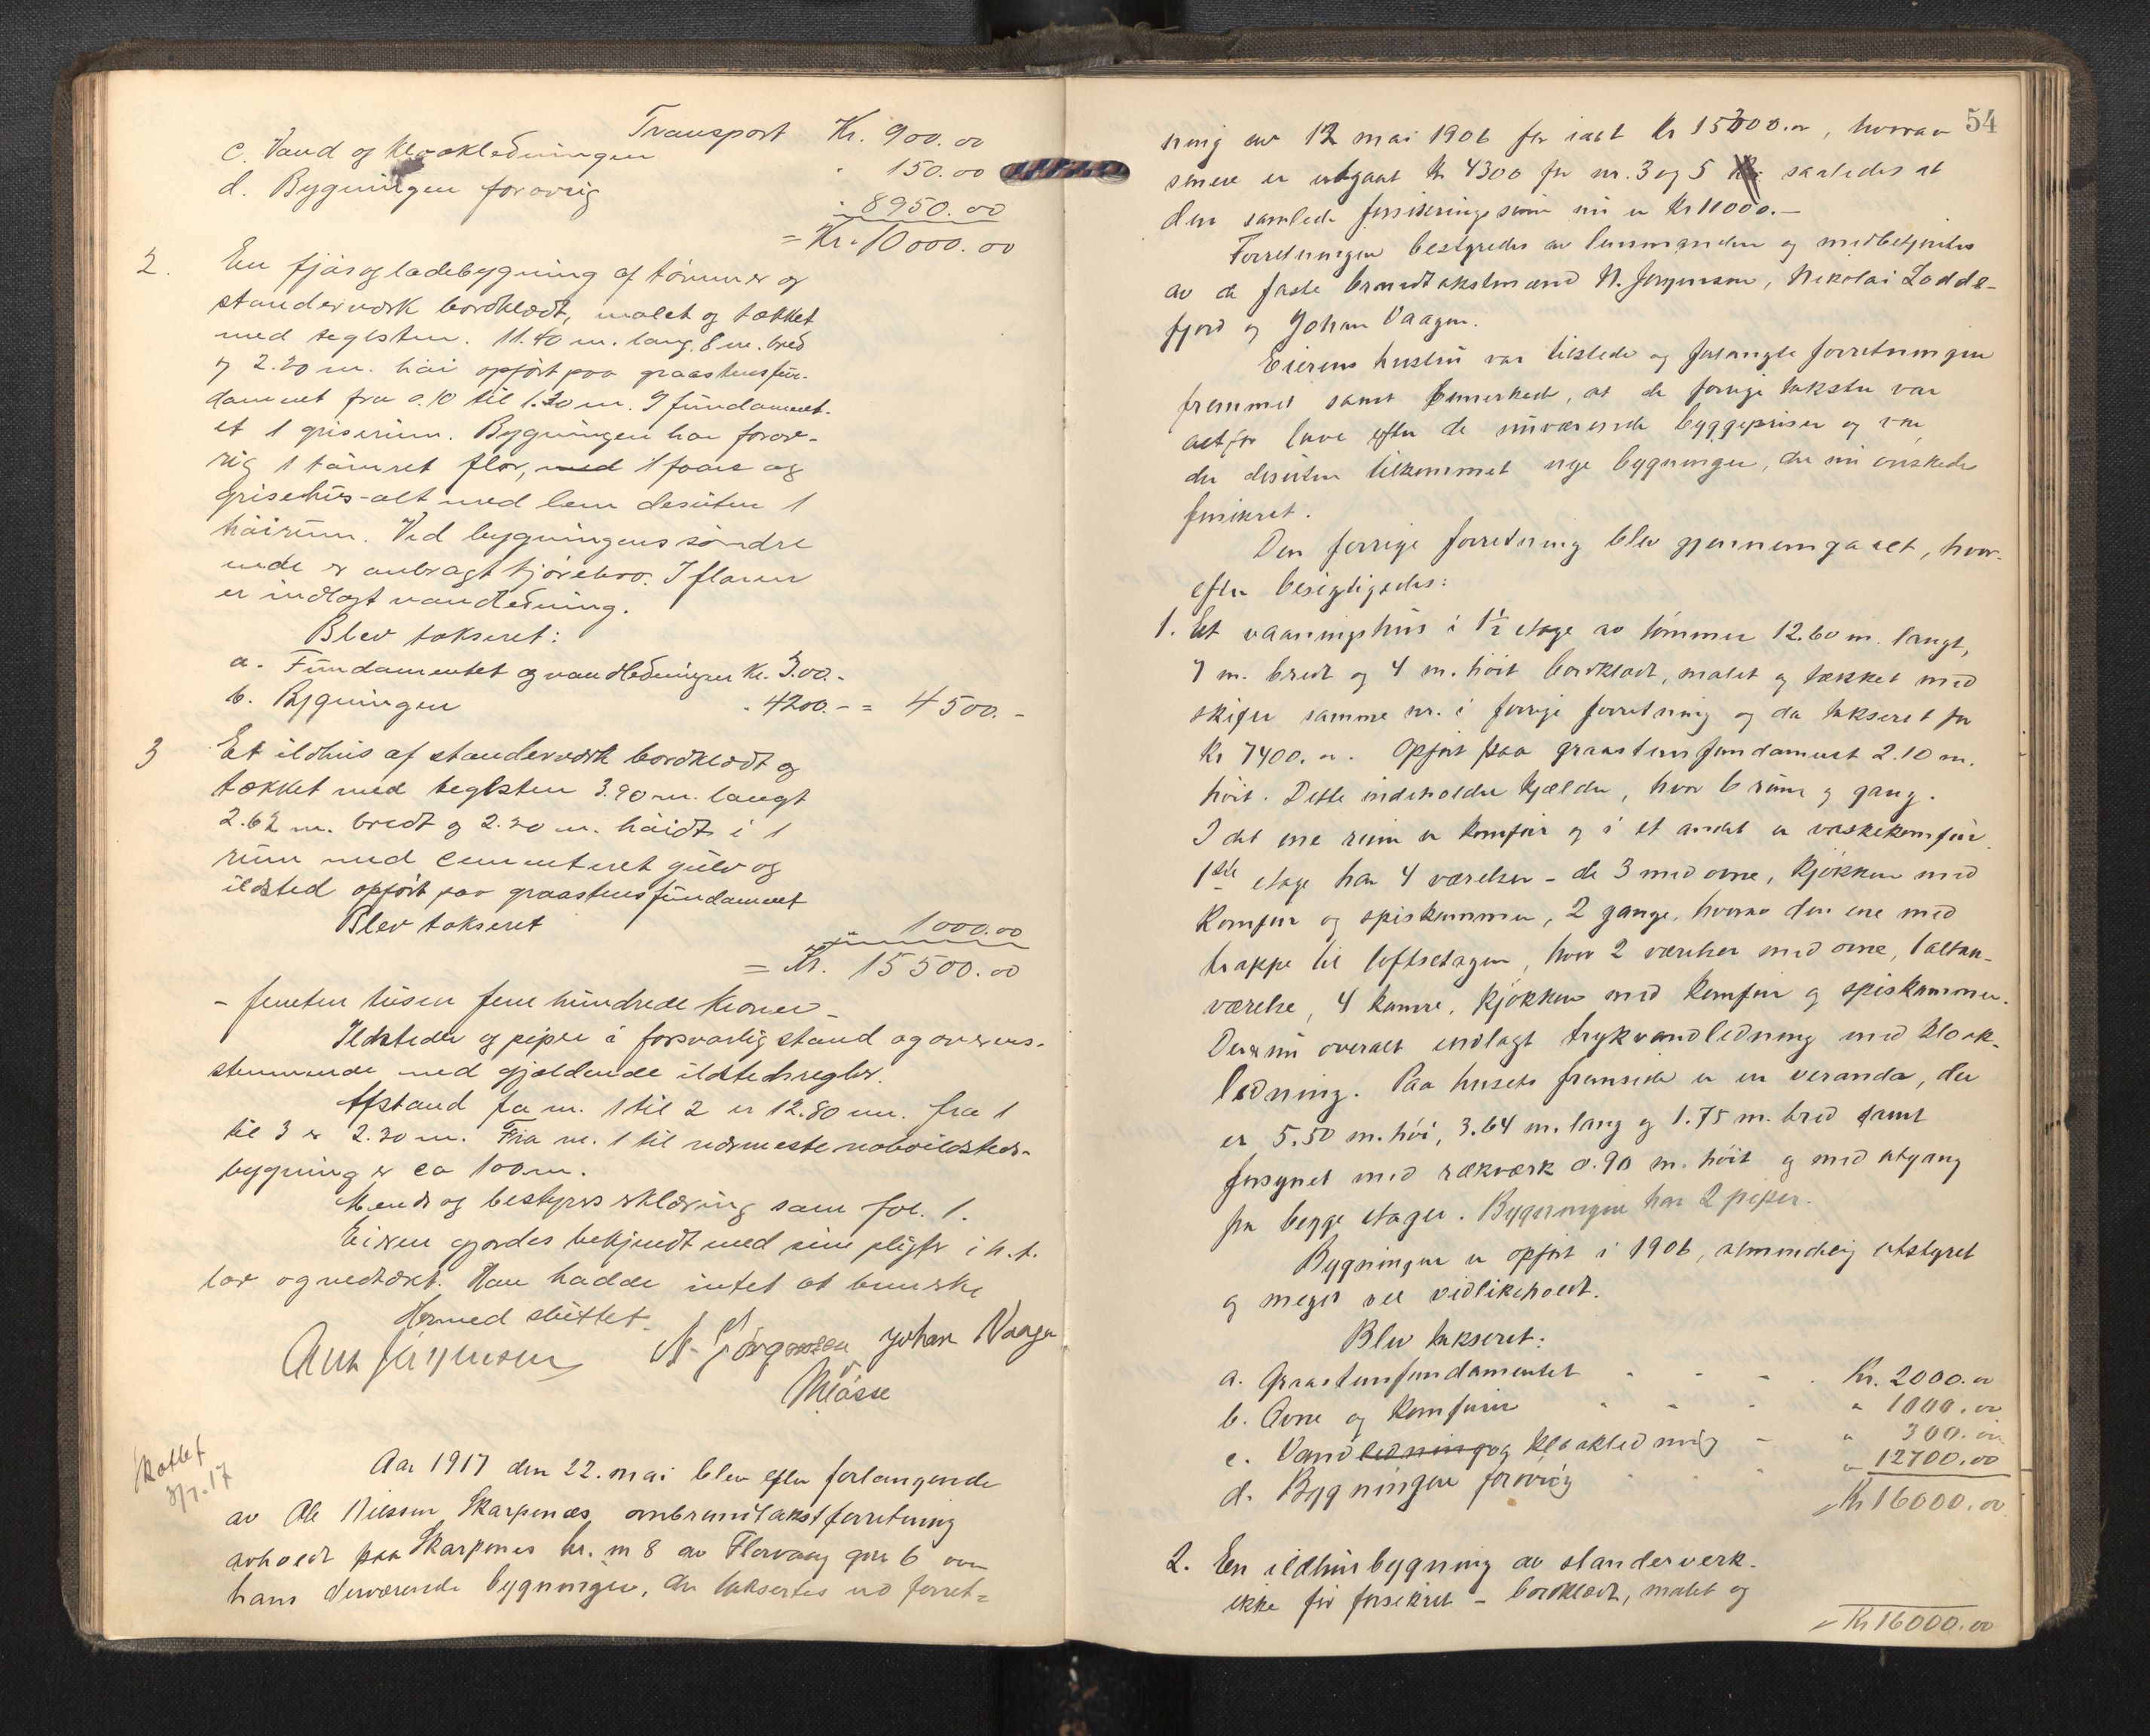 Transport Kr. 900.00
c. Vand og kloakledningen " 150.00
d. Bygningen forøvrig " 8950.00
= Kr. 10000.00
2. En fjøs og ladebygning af tømmer og
standerværk bordklædt, malet og tækket
med teglsten. 11.40 m. lang, 8 m. bred
og 2.20 m. høi opført paa graastensfun-
damentet fra 0.10 til 1.30 m. I fundament-
et 1 griserum. Bygningen har forøv-
rig 1 tømret flor, med 1 faare og
grisehus - alt med lem desuten 1
høirum. Ved bygningens søndre
ende er anbragt kjørebro. I floren
er indlagt vandledning.
Blev takseret:
a. Fundamentet og vandledningen Kr. 300.-
b. Bygningen " 4200.- = 4500.-
3 Et ildhus af standerværk bordklædt og
tækket med teglsten 3.90 m. langt
2.62 m. bredt og 2.20 m. høidt i 1
rum med cementeret gulv og
ildsted opført paa graastensfundament
Blev takseret 1000.00
= Kr. 15500.00
- femten tusen fem hundrede kroner -
Ildsteder og piper i forsvarlig stand og overens-
stemmende med gjældende ildstedsregler.
Afstand fra nr. 1 til 2 er 12.80 m. fra 1
til 3 er 2.30 m. Fra nr. 1 til nærmeste naboildsteds-
bygning er ca 100 m.
Mends og bestyrers erklæring som fol. 1.
Eieren gjordes bekjendt med sine pligter i h. t.
lov og vedtækt. Han hadde intet at bemerke
Hermed sluttet.
N. Jørgensen Johan Vaage
Skattet
3/7.17
Aar 1917 den 22. mai blev efter forlangende
av Ole Nilssen Skarpenes ombrandtakstforretning
avholdt paa Skarpenes br. nr 8 av Florvaag gnr 6 over
hans derværende bygninger, der taksertes ved forret-
54
ning av 12 mai 1906 for ialt kr 15300.00, hvorav
senere er utgaat kr 4300 for nr. 3 og 5 saaledes at
den samlede forsikringssum nu er Kr 11000.-
Forretningen bestyredes av lensmanden og medbetjentes
av de faste brandtakstmænd N. Jørgensen, Nikolai Lodde-
fjord og Johan Vaagen.
Eierens hustru var tilstede og forlangte forretningen
fremmet samt bemerkede, at de forrige takster var
altfor lave efter de nuværende byggepriser og var
der desuten tilkommet nye bygninger, der nu ønskedes
forsikret.
Den forrige forretning blev gjennemgaaet, hvor-
efter besigtigedes:
1. Et vaaningshus i 1½ etage av tømmer 12.60 m. langt,
7 m. bredt og 4 m. høit bordklædt, malet og tækket med
skifer samme nr. i forrige forretning og da takseret for
kr 7400.00. Opført paa graastensfundament 2.10 m.
høit. Dette indeholder kjælder, hvor 6 rum og gang.
I det ene rum er komfur og i et andet er vaskekomfur.
1ste etage har 4 værelser - de 3 med ovne, kjøkken med
komfur og spiskammer, 2 gange, hvorav den ene med
trappe til loftsetagen, hvor 2 værelser med ovne, 1 altan-
værelse, 4 kamre, kjøkken med komfur og spiskammer.
Der er nu overalt indlagt trykvandledning med kloak-
ledning. Paa husets fremside er en veranda, der
er 5.50 m. høi, 3.64 m. lang og 1.75 m. bred samt
forsynet med rækværk 0.90 m. høit og med utgang
fra begge etager. Bygningen har 2 piper.
Bygningen er opført i 1906, almindelig utstyret
og meget vel vedlikeholdt.
Blev takseret:
a. Graastensfundamentet Kr. 2000.00
b. Ovne og komfurer " 1000.00
c. Vandledning og kloakledning " 300.00
d. Bygningen forøvrig " 12700.00
Kr 16000.00
2. En ildhusbygning av standerverk -
ikke før forsikret - bordklædt, malet og
Kr 16000.00